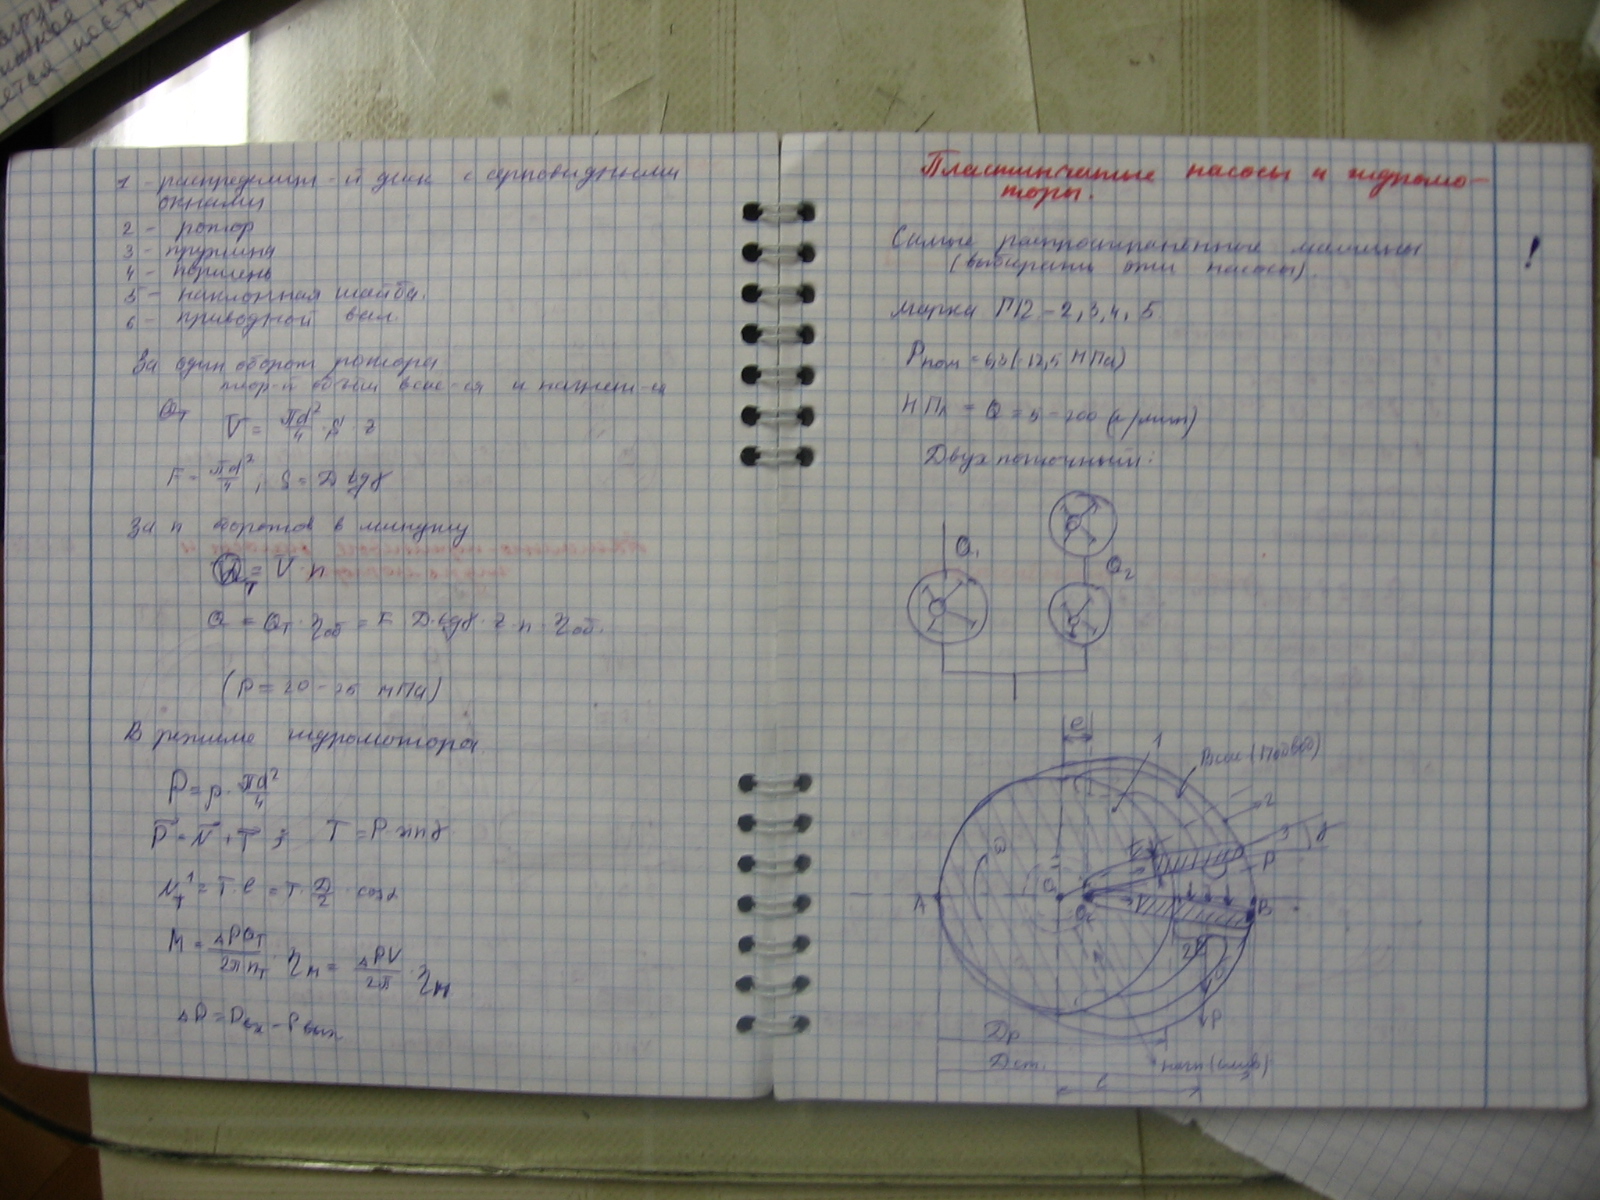 1 - распределит-й диск с серповидными
окнами
2 - ротор
3 - пружина
4 - поршень
5 - наклонная шайба.
6 - приводной вал.
За один оборот ротора
объём всас-ся и нагнет-ся
Qт
V = πd²/4 · S · z
F = πd²/4, S = D tgγ
За n оборотов в минуту
Qт = V · n
Q = Qт · ηоб = F · D · tgγ · z · n · ηоб.
(p = 20 - 25 мПа)
В режиме гидромотора
P = p · πd²/4
P = N + T ; T = P sinγ
T · l = T · D/2 · cosα
M = ΔPQт/2πnт · ηм = ΔPV/2π · ηм
ΔP = Pвх - Pвых
Пластинчатые насосы и гидромо-
торы.
Самые распространённые машины !
(выбирать эти насосы).
марка Г12 - 2, 3, 4, 5
Pном = 6,3 (-12,5 МПа)
Q = 5 - 200 (л/мин)
Двухпоточный:
Q₁
Q₂
e
1
Всас (Подвод)
2
3
γ
ω
P
A
O₁
O₂
B
P
Dр
Dст.
нагн (слив)
l